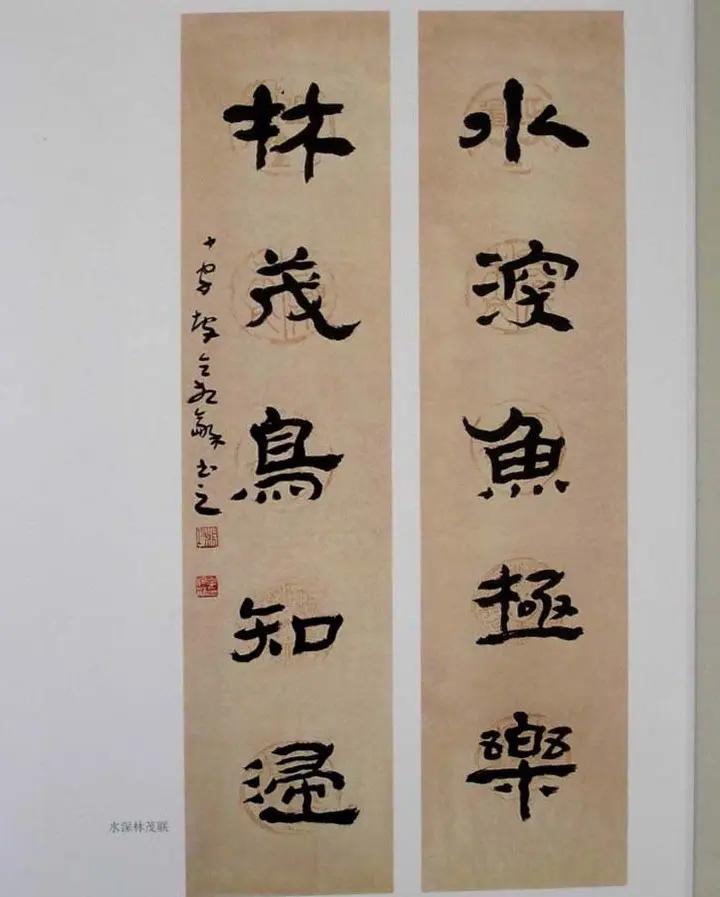 水深魚極樂
林茂鳥知歸
書之
水深林茂联